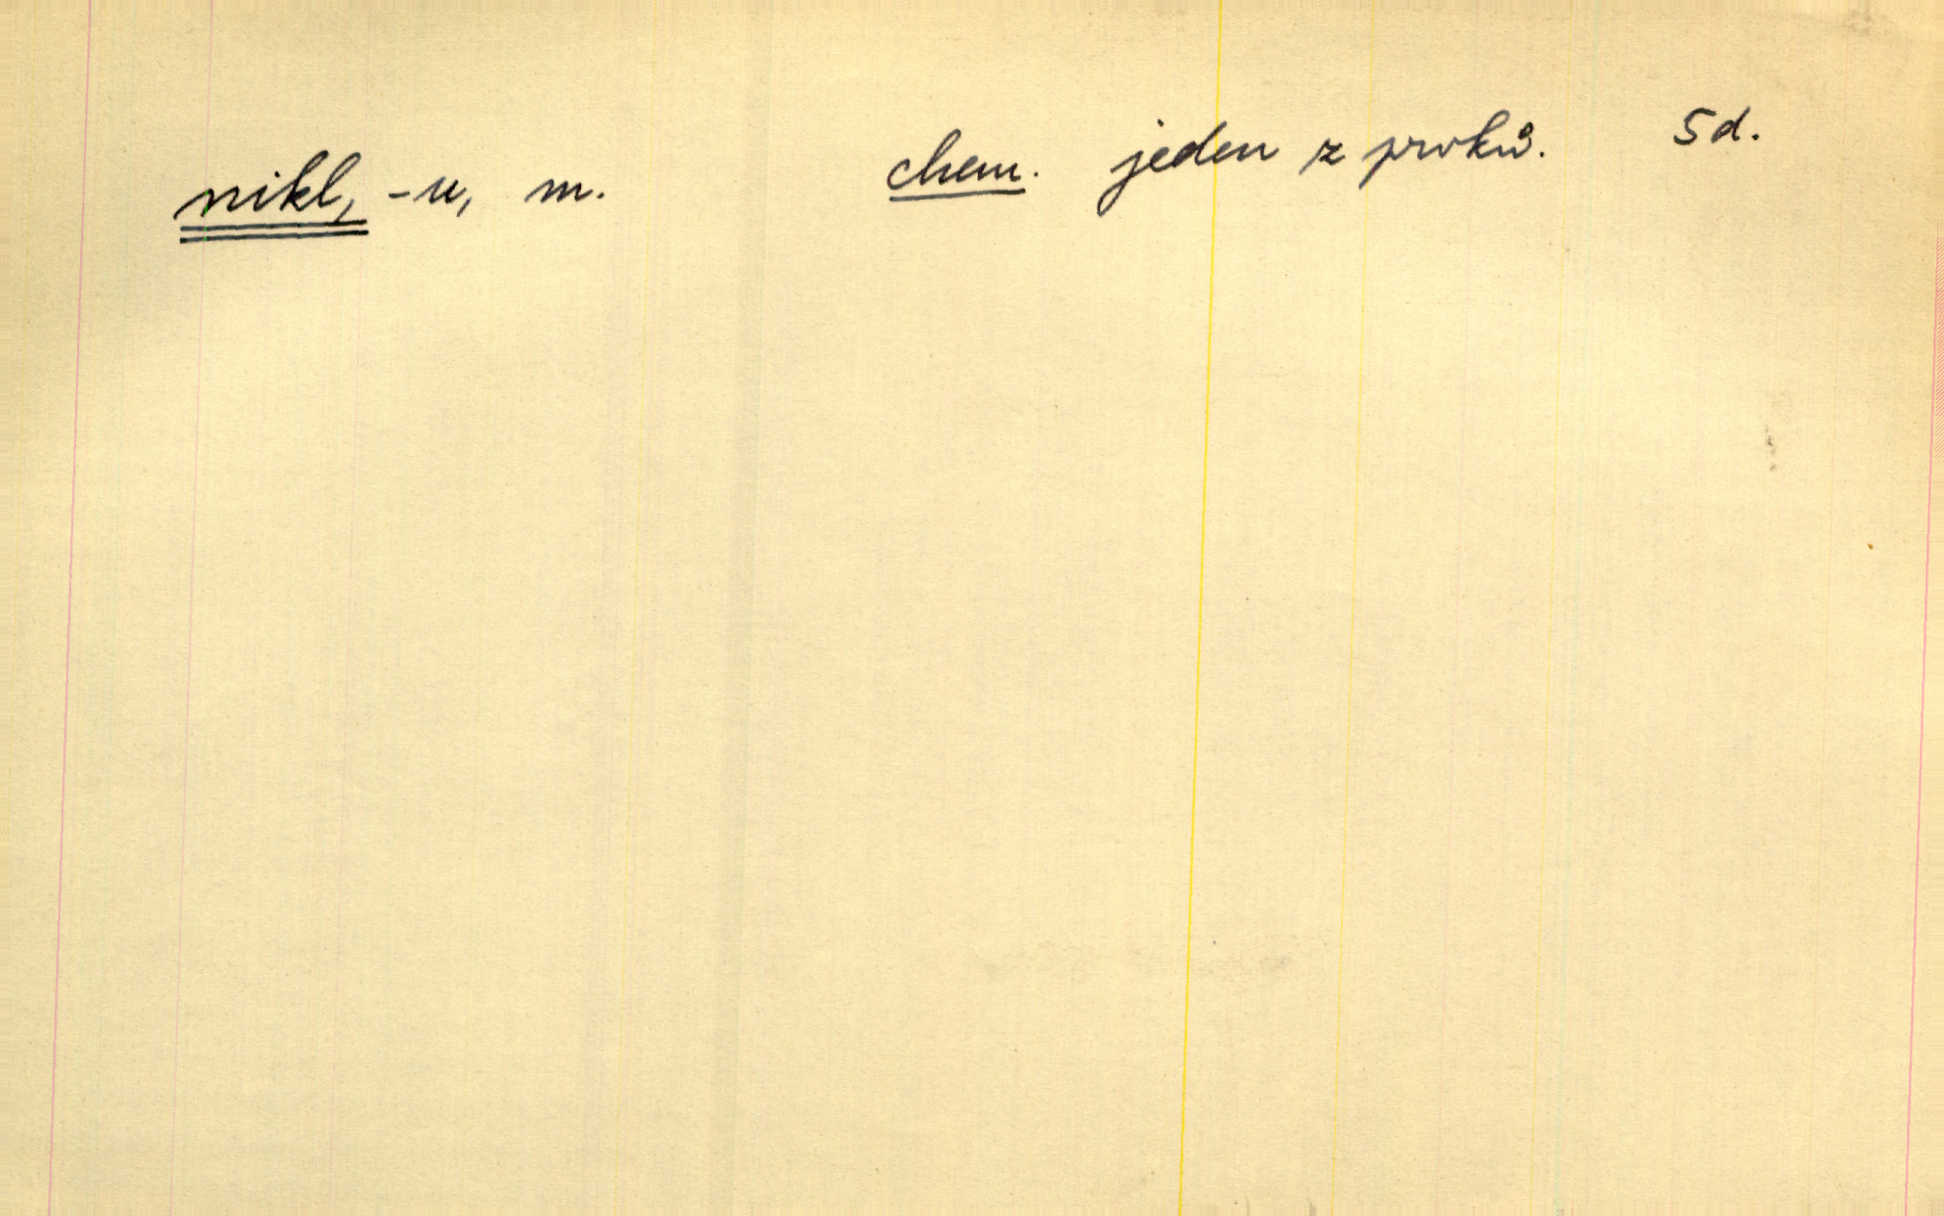 nikl, -u, m. chem. jeden z prvků. Sd.